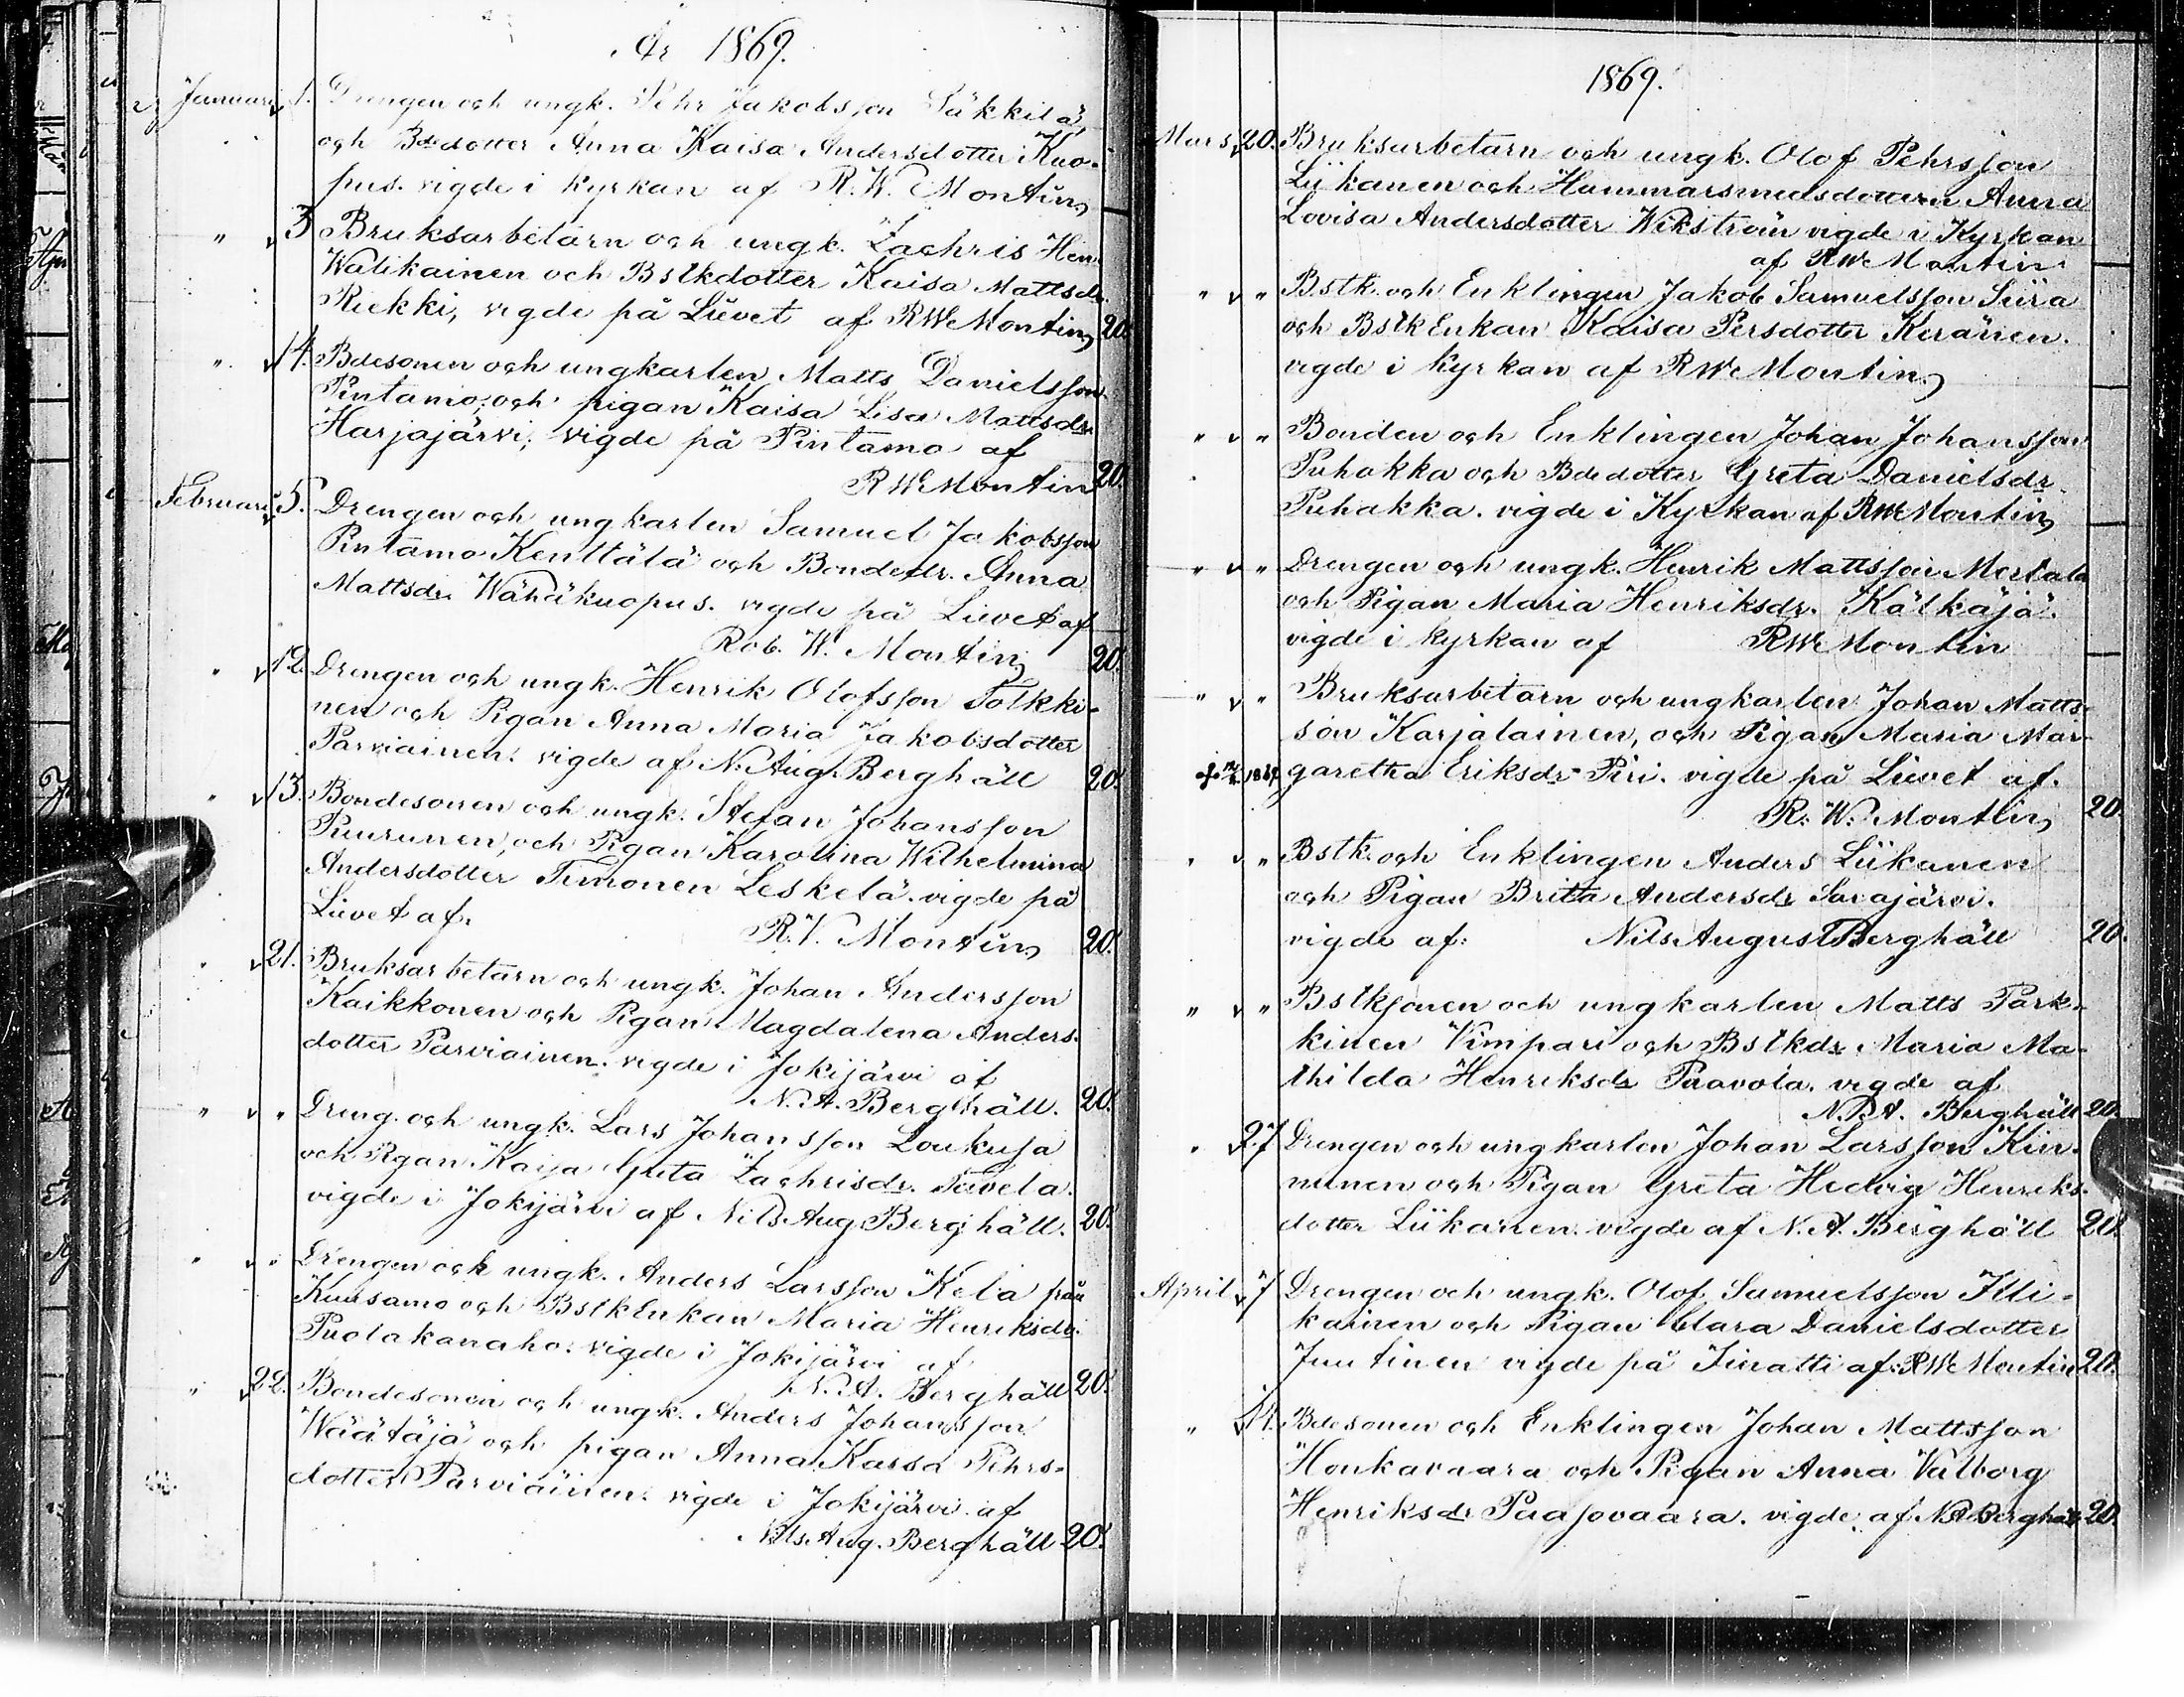 År 1869.
Januari 1. Drengen och ungk. Pehr Jakobsson Säkkilä,
och Bdedotter Anna Kaisa Andersdotter Kuo-
pus. vigde i kyrkan af R. W. Montin,
" 3 Bruksarbetarn och ungk. Zachris Hen.
Walikainen och Bstkdotter Kaisa Mattsdr.
Riekki, vigde på Lievet af RWMontin, 20.
" 14. Bdesonen och ungkarlen Matts Danielsson
Pintamo, och pigan Kaisa Lisa Mattsdr
Harjajärvi, vigde på Pintamo af
RWMontin 20.
Februari 5. Drengen och ungkarlen Samuel Jakobsson
Pintamo Kenttälä och Bondedr. Anna
Mattsdr. Wähäkuopus. vigde på Lievet af
Rob. W. Montin, 20.
" 12. Drengen och ungk. Henrik Olofsson Tolkki-
nen och Pigan Anna Maria Jakobsdotter
Parviainen. vigde af N. Aug. Berghäll 20.
" 13. Bondesonen och ungk. Stefan Johansson
Puurunen, och Pigan Karolina Wilhelmina
Andersdotter Timonen Leskelä. vigde på
Lievet af. R. V. Montin, 20.
" 21. Bruksarbetarn och ungk. Johan Andersson
Kaikkonen och Pigan Magdalena Anders-
dotter Parviainen. vigde i Jokijärvi af
N. A. Berghäll. 20.
" " Dreng. och ungk. Lars Johansson Loukusa
och Pigan Kaisa Greta Zachrisdr. Taivela.
vigde i Jokijärvi af Nils Aug. Berghäll. 20.
" " Drengen och ungk. Anders Larsson Kela från
Kuusamo och Bstk Enkan Maria Henriksdr.
Puolakanaho. vigde i Jokijärvi af
N. A. Berghäll 20.
" 22. Bondesonen och ungk. Anders Johansson
Wäätäjä och pigan Anna Kaisa Pehrs-
dotter Parviainen. vigde i Jokijärvi af
Nils Aug. Berghäll 20.
1869.
Mars 20. Bruksarbetarn och ungk. Olof Pehrsson
Liikanen och Hammarsmedsdottern Anna
Lovisa Andersdotter Wikström vigde i Kyrkan
af RWMontin
" " Bstk. och Enklingen Jakob Samuelsson Siira
och Bstk Enkan Kaisa Persdotter Keränen.
vigde i kyrkan af RWMontin,
" " Bonden och Enklingen Johan Johansson
Puhakka och Bdedotter Greta Danielsdr
Puhakka. vigde i Kyrkan af RWMontin,
" " Drengen och ungk. Henrik Mattsson Mertala
och Pigan Maria Henriksdr. Kälkäjä.
vigde i kyrkan af RWMontin
" " Bruksarbetarn och ungkarlen Johan Matts-
son Karjalainen, och Pigan Maria Mar-
garetha Eriksdr Piri. vigde på Lievet af.
R. W. Montin, 20.
" " Bstk. och Enklingen Anders Liikanen
och Pigan Britta Andersdr Sarajärvi.
vigde af: Nils August Berghäll 20.
" " Bstksonen och ungkarlen Matts Park-
kinen Vimpari och Bstkdr Maria Ma-
thilda Henriksdr Paavola. vigde af
N. A. Berghäll 20.
" 27 Drengen och ungkarlen Johan Larsson Kin-
nunen och Pigan Greta Hedvig Henriks-
dotter Liikanen. vigde af N. A. Berghäll 20.
April 7 Drengen och ungk. Olof Samuelsson Illi-
kainen och Pigan Clara Danielsdotter
Juutinen vigde på Jinatti af RWMontin 20.
" 11. Bdesonen och Enklingen Johan Mattsson
Honkavaara och Pigan Anna Valborg
Henriksdr Paasovaara. vigde af N A Berghäll 20.